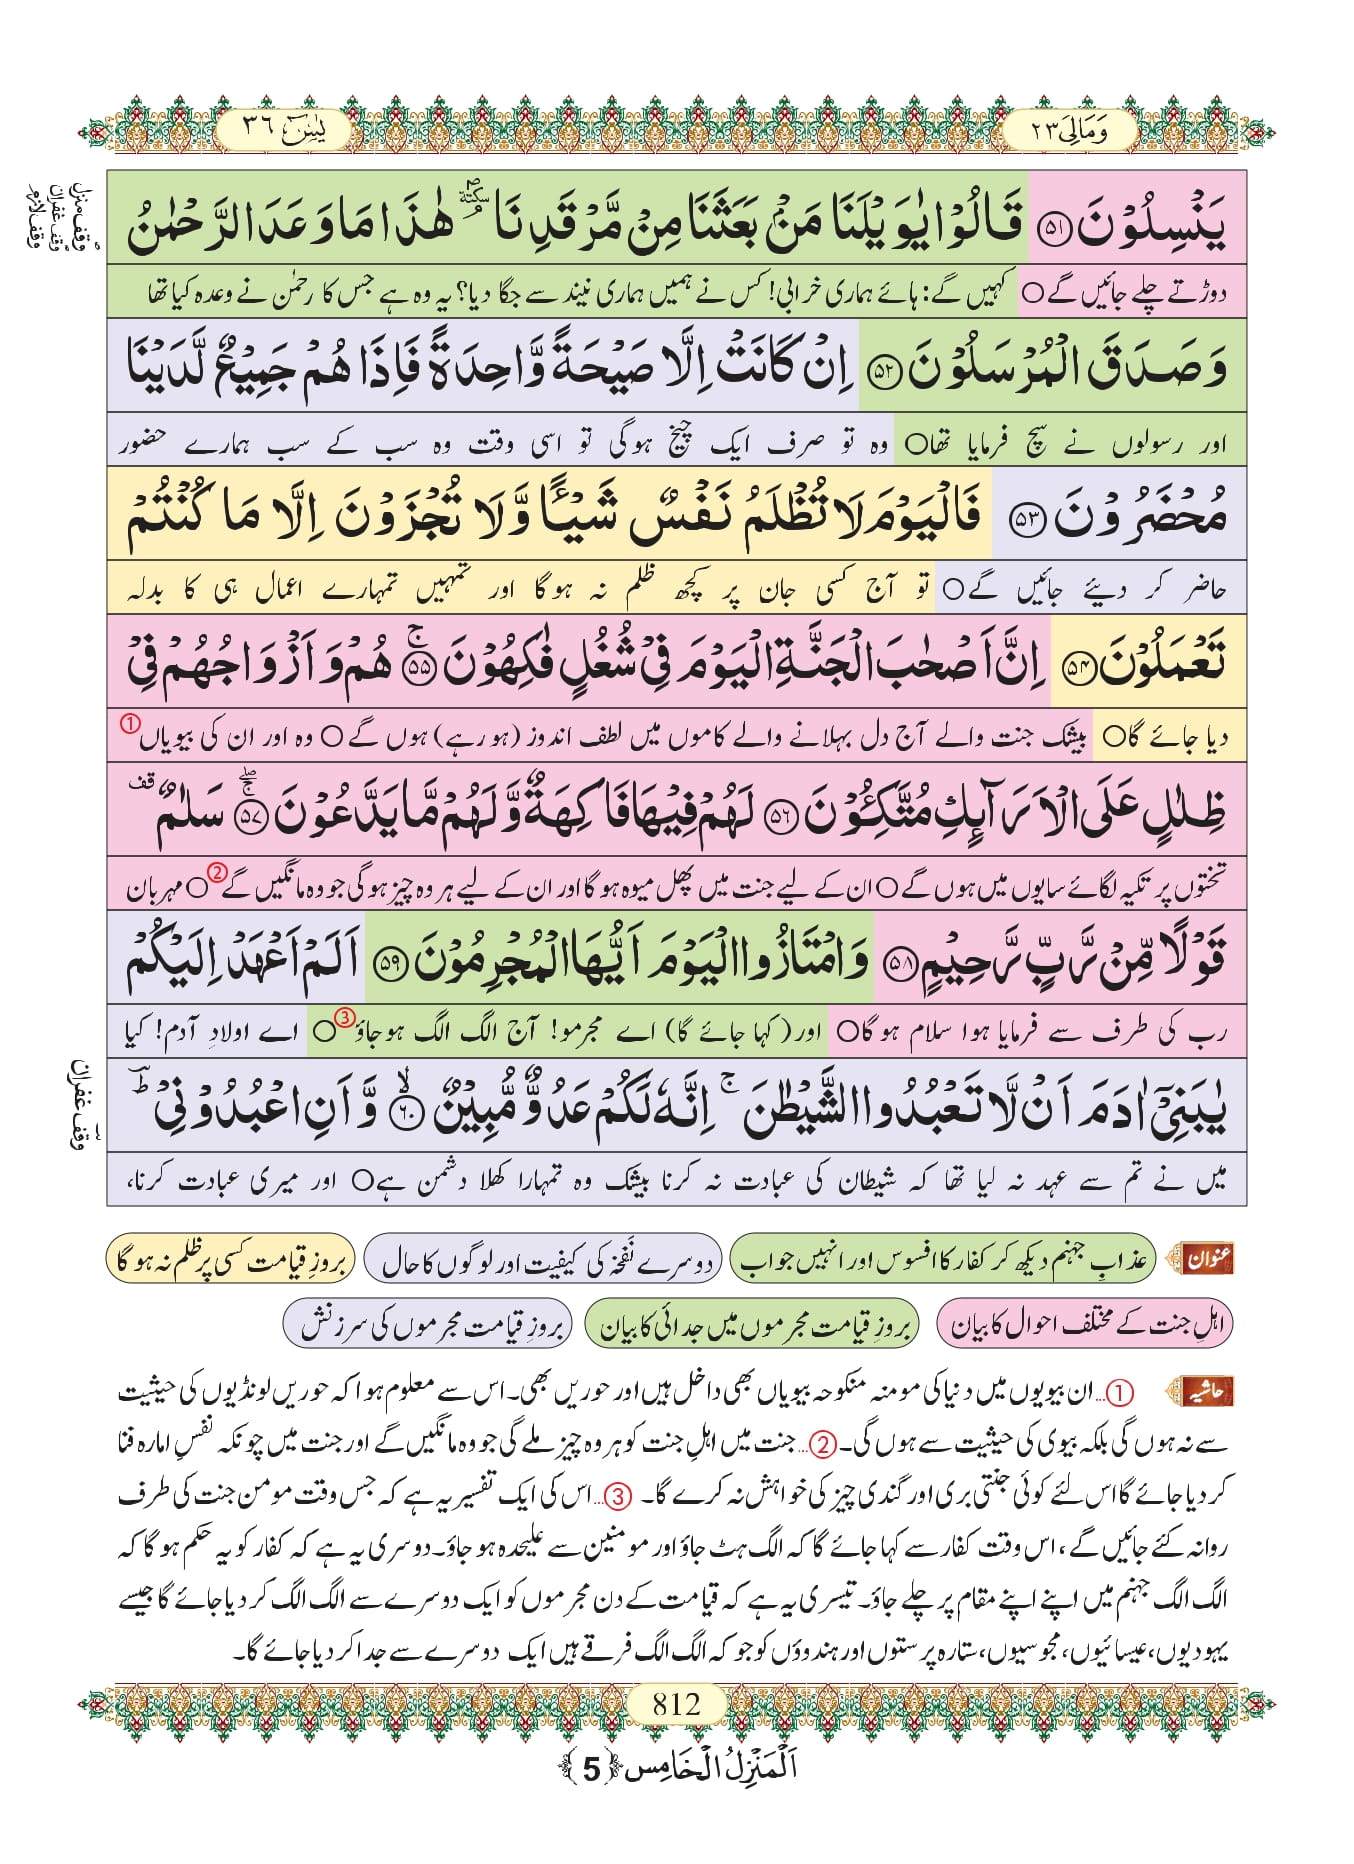 وَمَالِیَ ٢٣
يٰسٓ ٣٦
وقف منزل
وقف غفران
وقف لازم
يَنْسِلُوْنَ ﴿٥١﴾ قَالُوْا يٰوَيْلَنَا مَنْۢ بَعَثَنَا مِنْ مَّرْقَدِنَا ۘ سكتة هٰذَا مَا وَعَدَ الرَّحْمٰنُ
دوڑتے چلے جائیں گے○ کہیں گے: ہائے ہماری خرابی! کس نے ہمیں ہماری نیند سے جگا دیا؟ یہ وہ ہے جس کا رحمٰن نے وعدہ کیا تھا
وَ صَدَقَ الْمُرْسَلُوْنَ ﴿٥٢﴾ اِنْ كَانَتْ اِلَّا صَيْحَةً وَّاحِدَةً فَاِذَا هُمْ جَمِيْعٌ لَّدَيْنَا
اور رسولوں نے سچ فرمایا تھا○ وہ تو صرف ایک چیخ ہوگی تو اسی وقت وہ سب کے سب ہمارے حضور
مُحْضَرُوْنَ ﴿٥٣﴾ فَالْيَوْمَ لَا تُظْلَمُ نَفْسٌ شَيْـًٔا وَّلَا تُجْزَوْنَ اِلَّا مَا كُنْتُمْ
حاضر کر دیئے جائیں گے○ تو آج کسی جان پر کچھ ظلم نہ ہوگا اور تمہیں تمہارے اعمال ہی کا بدلہ
تَعْمَلُوْنَ ﴿٥٤﴾ اِنَّ اَصْحٰبَ الْجَنَّةِ الْيَوْمَ فِيْ شُغُلٍ فٰكِهُوْنَ ۚ﴿٥٥﴾ هُمْ وَ اَزْوَاجُهُمْ فِيْ
دیا جائے گا○ بیشک جنت والے آج دل بہلانے والے کاموں میں لطف اندوز (ہو رہے) ہوں گے○ وہ اور ان کی بیویاں①
ظِلٰلٍ عَلَى الْاَرَآىِٕكِ مُتَّكِـُٔوْنَ ﴿٥٦﴾ لَهُمْ فِيْهَا فَاكِهَةٌ وَّ لَهُمْ مَّا يَدَّعُوْنَ ۚۖ﴿٥٧﴾ سَلٰمٌ ۟ قف
تختوں پر تکیہ لگائے سایوں میں ہوں گے○ ان کے لیے جنت میں پھل میوہ ہوگا اور ان کے لیے ہر وہ چیز ہوگی جو وہ مانگیں گے②○ مہربان
قَوْلًا مِّنْ رَّبٍّ رَّحِيْمٍ ﴿٥٨﴾ وَ امْتَازُوا الْيَوْمَ اَيُّهَا الْمُجْرِمُوْنَ ﴿٥٩﴾ اَلَمْ اَعْهَدْ اِلَيْكُمْ
رب کی طرف سے فرمایا ہوا سلام ہوگا○ اور (کہا جائے گا) اے مجرمو! آج الگ الگ ہوجاؤ③○ اے اولادِ آدم! کیا
يٰبَنِيْۤ اٰدَمَ اَنْ لَّا تَعْبُدُوا الشَّيْطٰنَ ۚ اِنَّهٗ لَكُمْ عَدُوٌّ مُّبِيْنٌ ۙ﴿٦٠﴾ وَّ اَنِ اعْبُدُوْنِيْ ؕ
وقف غفران
میں نے تم سے عہد نہ لیا تھا کہ شیطان کی عبادت نہ کرنا بیشک وہ تمہارا کھلا دشمن ہے○ اور میری عبادت کرنا،
عنوان عذابِ جہنم دیکھ کر کفار کا افسوس اور انہیں جواب دوسرے نَفخہ کی کیفیت اور لوگوں کا حال بروزِ قیامت کسی پر ظلم نہ ہوگا
اہلِ جنت کے مختلف احوال کا بیان بروزِ قیامت مجرموں میں جدائی کا بیان بروزِ قیامت مجرموں کی سرزنش
حاشیہ ①...ان بیویوں میں دنیا کی مومنہ منکوحہ بیویاں بھی داخل ہیں اور حوریں بھی۔ اس سے معلوم ہوا کہ حوریں لونڈیوں کی حیثیت
سے نہ ہوں گی بلکہ بیوی کی حیثیت سے ہوں گی۔ ②...جنت میں اہلِ جنت کو ہر وہ چیز ملے گی جو وہ مانگیں گے اور جنت میں چونکہ نفسِ امارہ فنا
کردیا جائے گا اس لئے کوئی جنتی بری اور گندی چیز کی خواہش نہ کرے گا۔ ③...اس کی ایک تفسیر یہ ہے کہ جس وقت مومن جنت کی طرف
روانہ کئے جائیں گے، اس وقت کفار سے کہا جائے گا کہ الگ ہٹ جاؤ اور مومنین سے علیحدہ ہوجاؤ۔ دوسری یہ ہے کہ کفار کو یہ حکم ہوگا کہ
الگ الگ جہنم میں اپنے اپنے مقام پر چلے جاؤ۔ تیسری یہ ہے کہ قیامت کے دن مجرموں کو ایک دوسرے سے الگ الگ کردیا جائے گا جیسے
یہودیوں، عیسائیوں، مجوسیوں، ستارہ پرستوں اور ہندوؤں کو جو کہ الگ الگ فرقے ہیں ایک دوسرے سے جدا کردیا جائے گا۔
812
اَلْمَنْزِلُ الْخَامِس ﴿5﴾